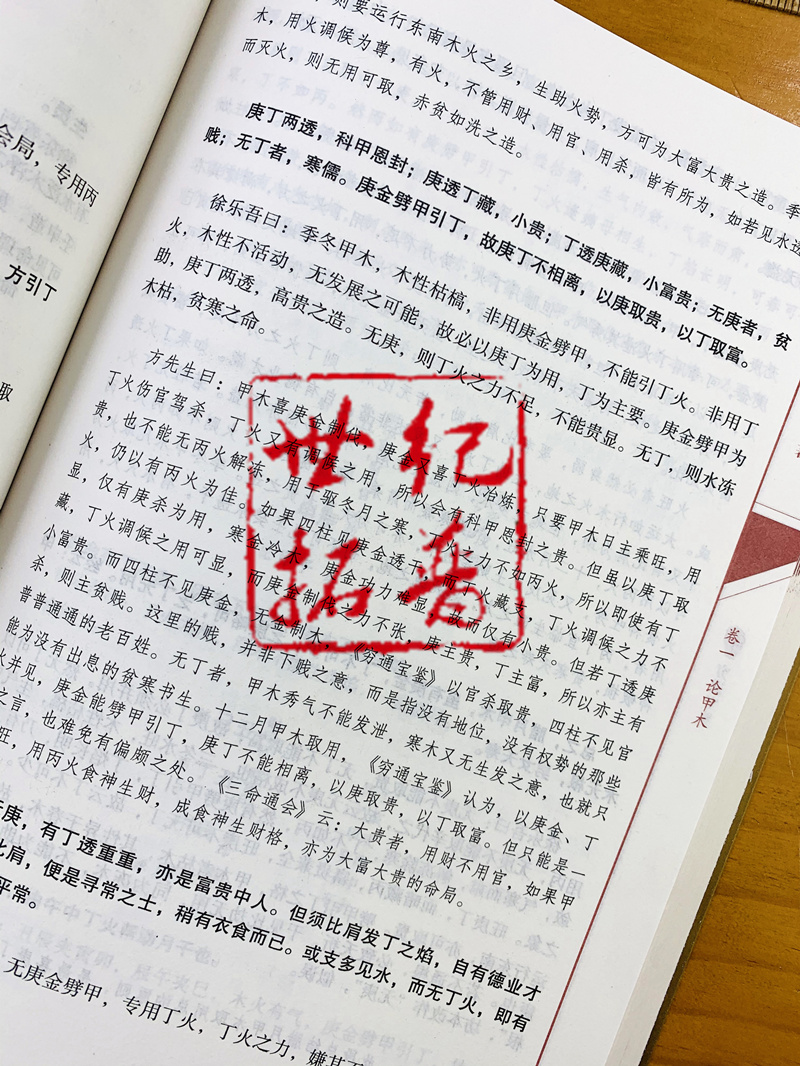 会局，专用丙
方引丁
取
则要运行东南木火之乡，生助火势，方可为大富大贵之造。季
木，用火调候为尊，有火，不管用财、用官、用杀，皆有所为，如若见水
而灭火，则无用可取，赤贫如洗之造。
庚丁两透，科甲恩封；庚透丁藏，小贵；丁透庚藏，小富贵；无庚者，贫
贱；无丁者，寒儒。庚金劈甲引丁，故庚丁不相离，以庚取贵，以丁取富。
徐乐吾曰：季冬甲木，木性枯槁，非用庚金劈甲，不能引丁火。非用丁
火，木性不活动，无发展之可能，故必以庚丁为用，丁为主要。庚金劈甲为
助，庚丁两透，高贵之造。无庚，则丁火之力不足，不能贵显。无丁，则水冻
木枯，贫寒之命。
方先生曰：甲木喜庚金制伐，庚金又喜丁火冶炼，只要甲木日主乘旺，用
丁火伤官驾杀，丁火又有调候之用，所以会有科甲恩封之贵。但虽以庚丁取
贵，也不能无丙火解冻，用于驱冬月之寒，丁火之力不如丙火，所以即使有丁
火，仍以有丙火为佳。如果四柱见庚金透干，而丁火藏支，丁火调候之力不
显，仅有庚杀为用，寒金冷木，庚金功力难显，故而仅有小贵。但若丁透庚
藏，丁火调候之用可显，而庚金制伐之力不张，庚主贵，丁主富，所以亦主有
小富贵。而四柱不见庚金，无金制木，《穷通宝鉴》以官杀取贵，四柱不见官
杀，则主贫贱。这里的贱，并非下贱之意，而是指没有地位，没有权势的那些
普普通通的老百姓。无丁者，甲木秀气不能发泄，寒木又无生发之意，也就只
能为没有出息的贫寒书生。十二月甲木取用，《穷通宝鉴》认为，以庚金、丁
火并见，庚金能劈甲引丁，庚丁不能相离，以庚取贵，以丁取富。但只能是一
之言，也难免有偏颇之处。《三命通会》云：大贵者，用财不用官，如果甲
旺，用丙火食神生财，成食神生财格，亦为大富大贵的命局。
庚，有丁透重重，亦是富贵中人。但须比肩发丁之焰，自有德业才
比肩，便是寻常之士，稍有衣食而已。或支多见水，而无丁火，即有
平常。
无庚金劈甲，专用丁火，丁火之力，嫌其不
卷一
论甲木
世纪
拓普